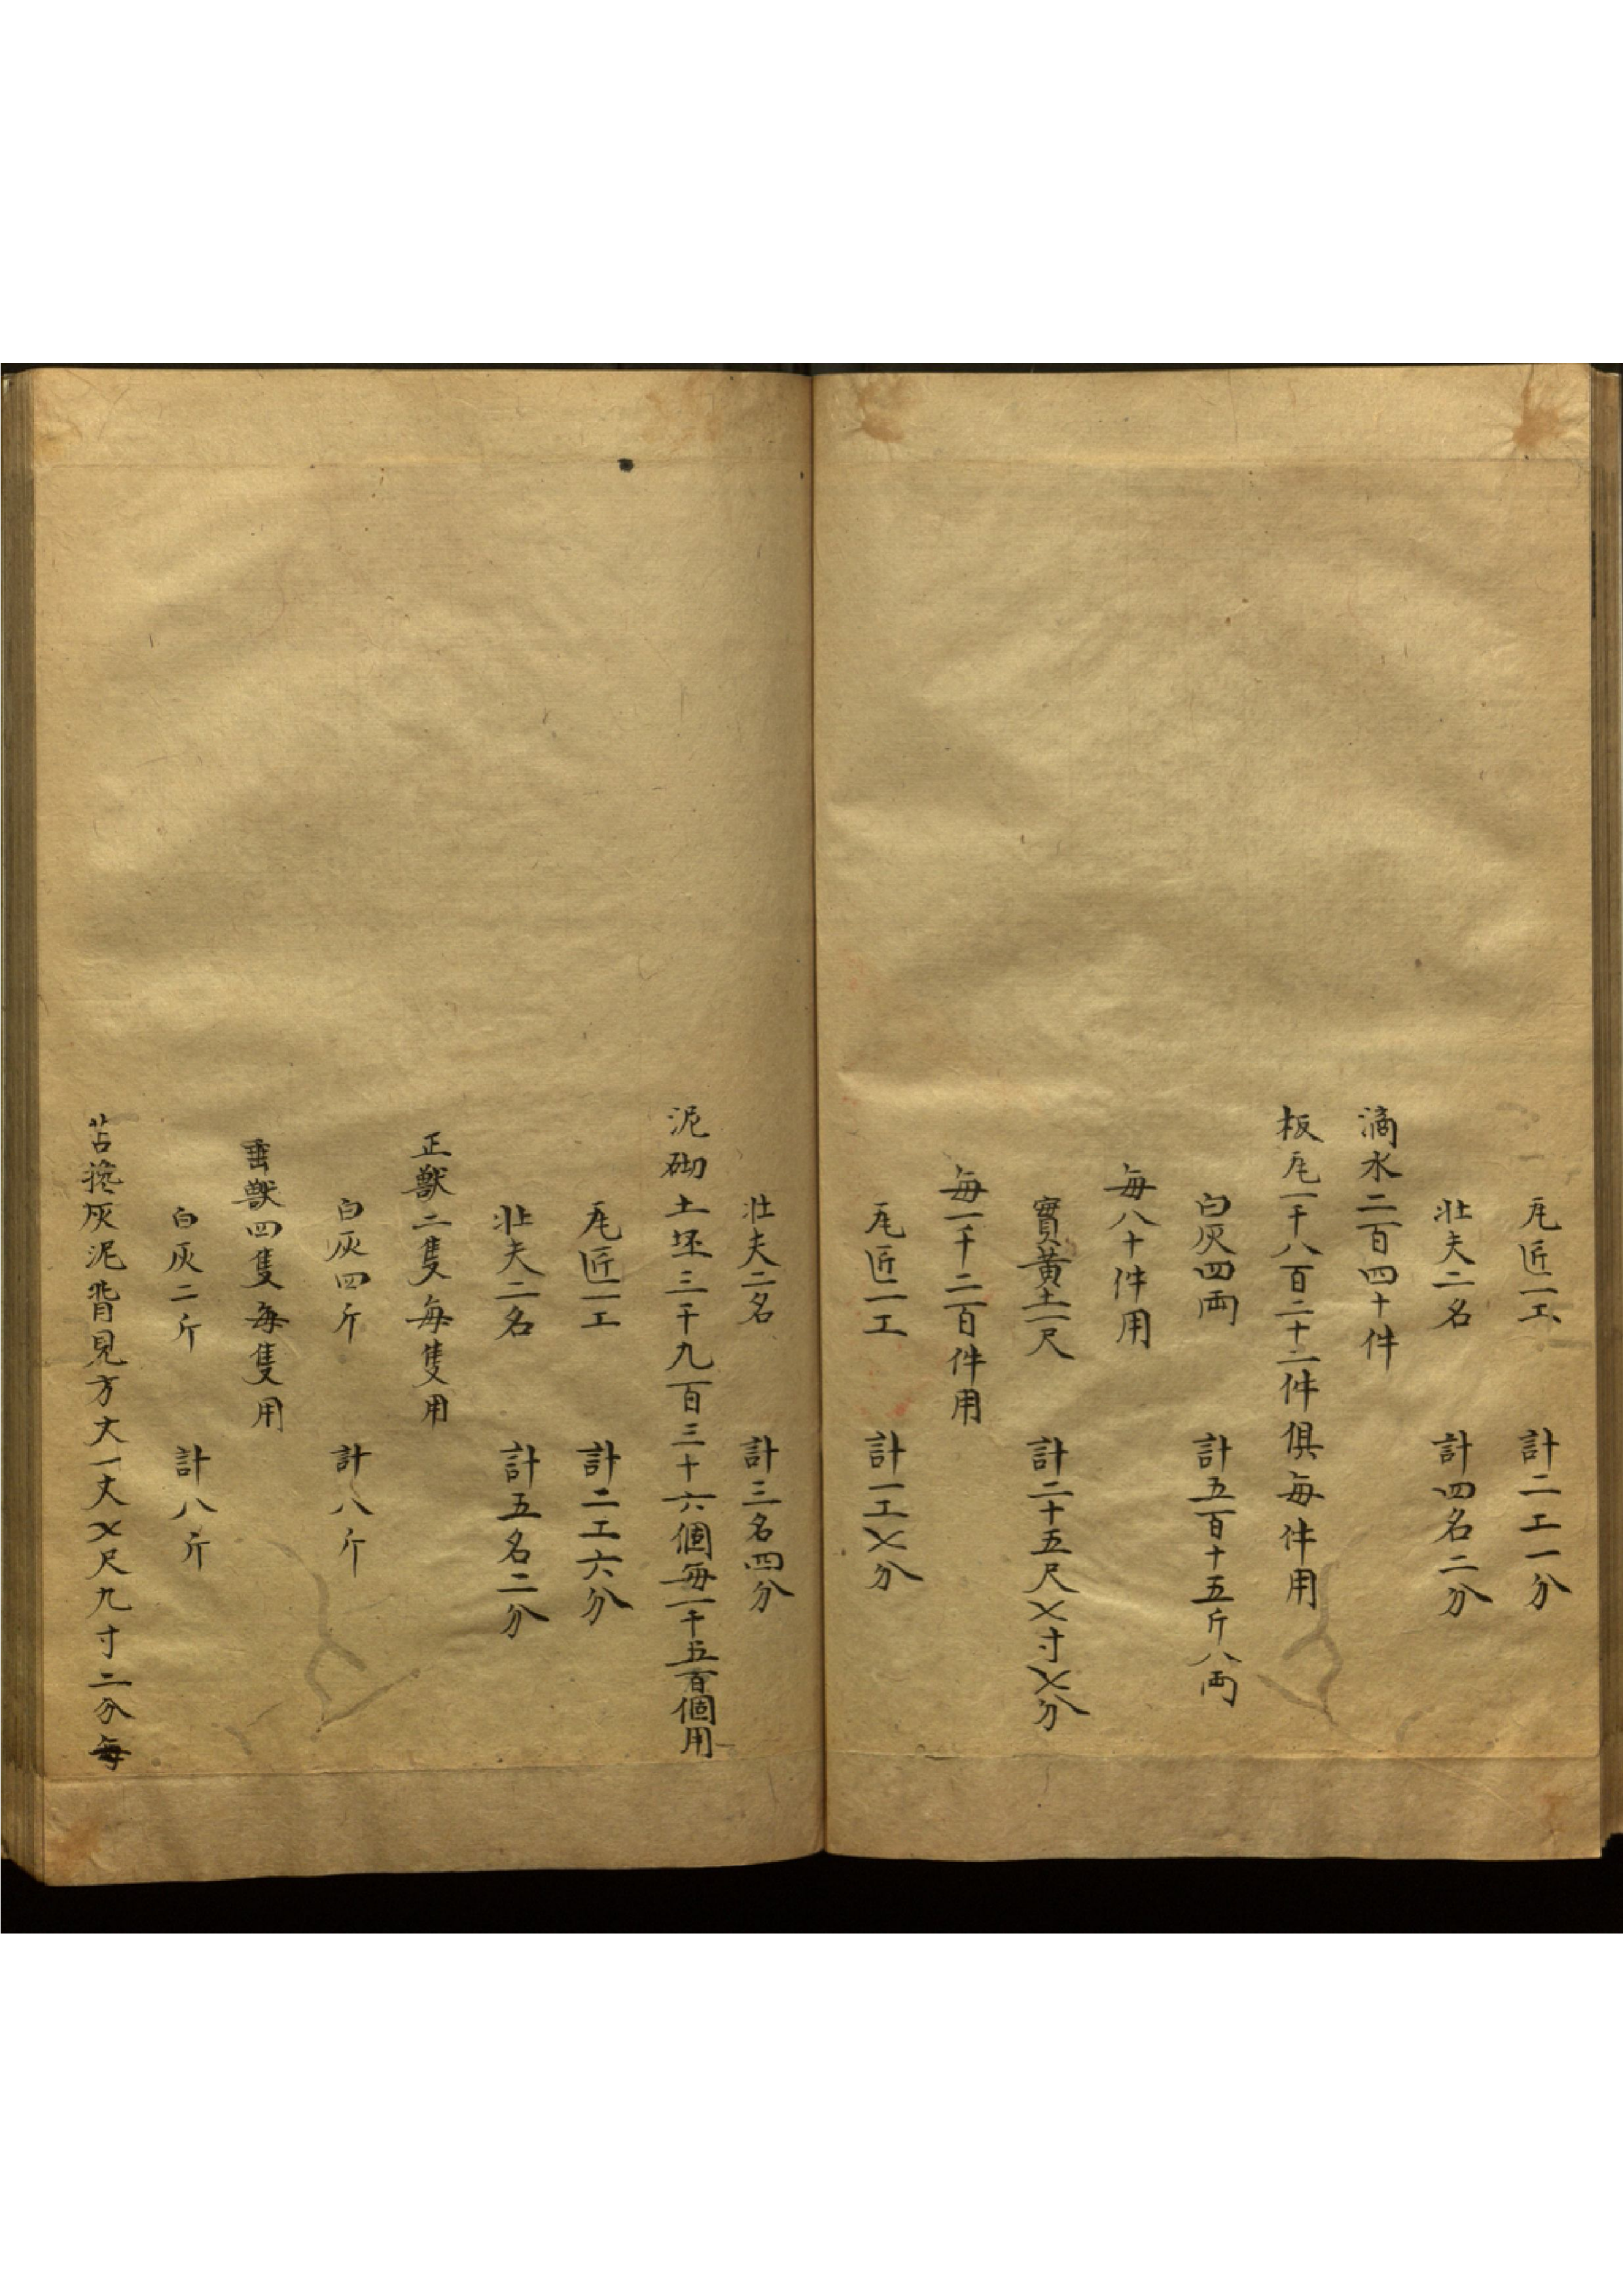 瓦匠一工 計二工一分
壮夫二名 計四名二分
滴水二百四十件
板瓦一千八百二十二件俱每件用
白灰四両 計五百十五斤八両
每八十件用
實黃土一尺 計二十五尺〤寸〤分
每一千二百件用
瓦匠一工 計一工〤分
壮夫二名 計三名四分
泥砌土坯三千九百三十六個每一千五百個用
瓦匠一工 計二工六分
壮夫二名 計五名二分
正獸二隻每隻用
白灰四斤 計八斤
垂獸四隻每隻用
白灰二斤 計八斤
苫攙灰泥背見方丈一丈〤尺九寸二分每